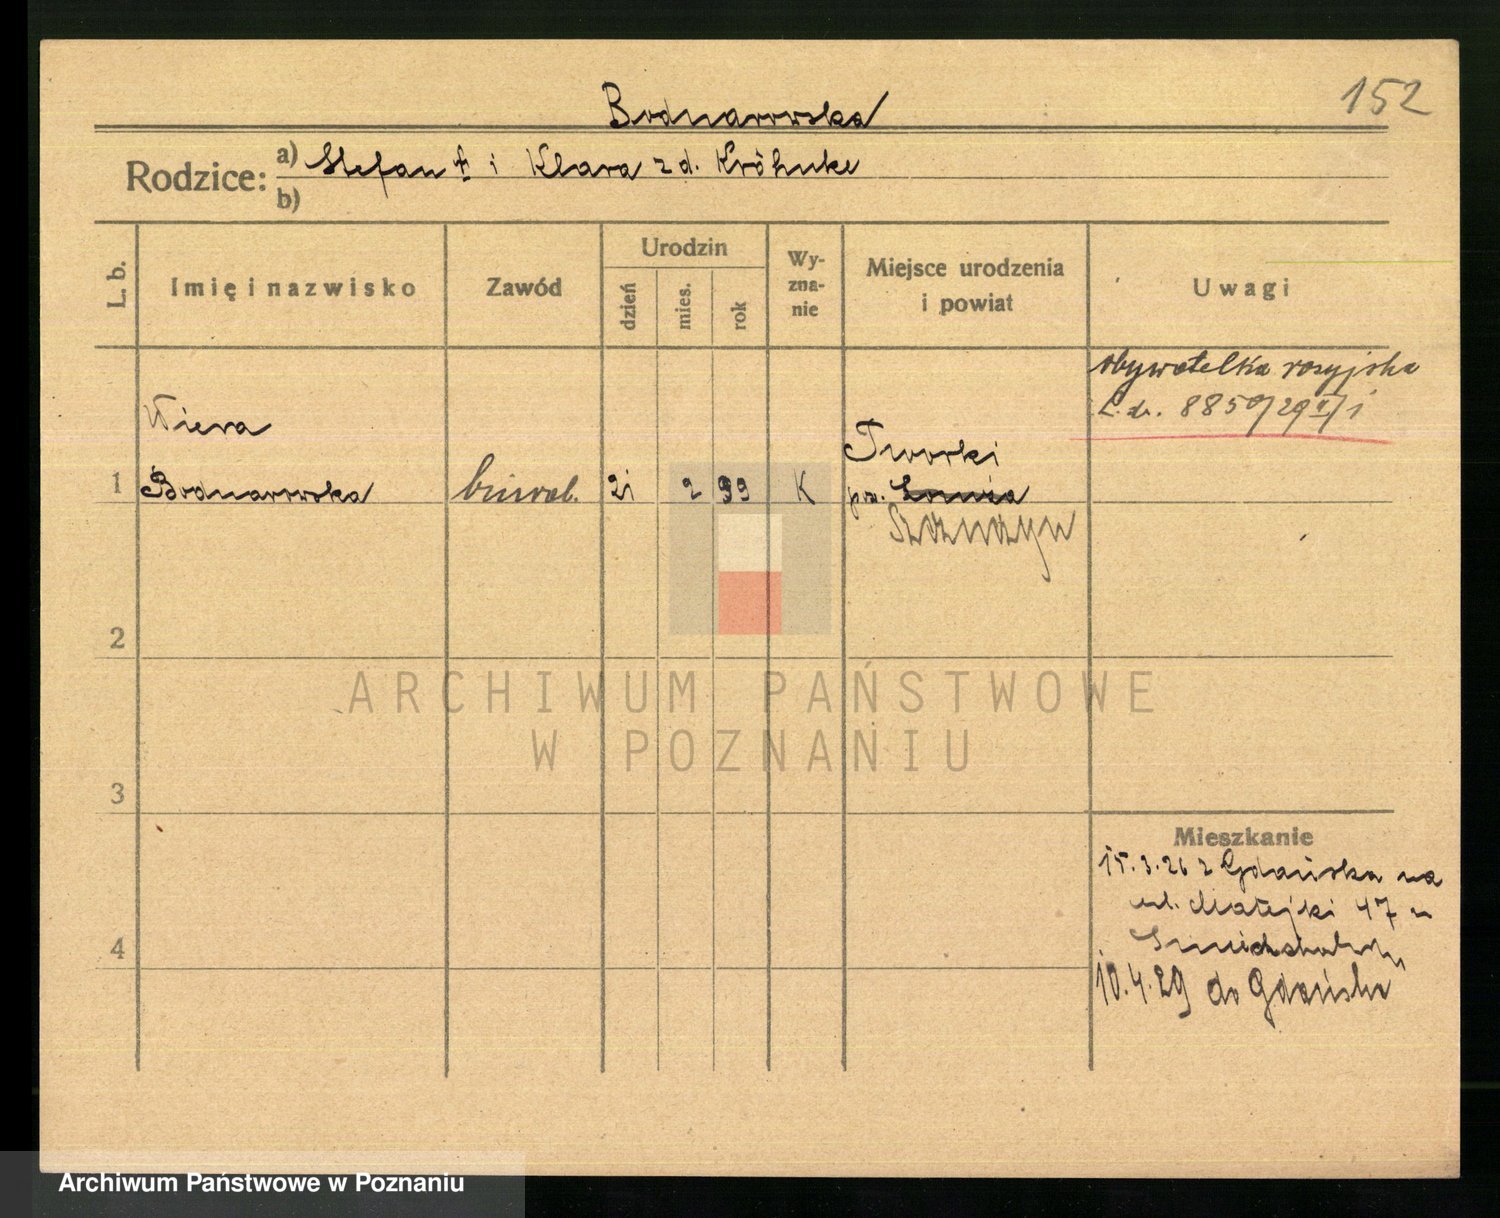 152
Bodnarowska
Rodzice: a) Stefan † i Klara z d. Kröhnke
b)
L. b.
Imię i nazwisko
Zawód
Urodzin
dzień
mies.
rok
Wy-
zna-
nie
Miejsce urodzenia
i powiat
Uwagi
obywatelka rosyjska
L. dz. 8850/29 V/1
1
Wiera
Bodnarowska
biural.
21
2
99
K
Tworki
pow. Łomża
Szczuczyn
2
ARCHIWUM PAŃSTWOWE
W POZNANIU
3
Mieszkanie
15.3.26 z Gdańska na
ul. Matejki 47 u
4
10.4.29 do Gdańska
Archiwum Państwowe w Poznaniu